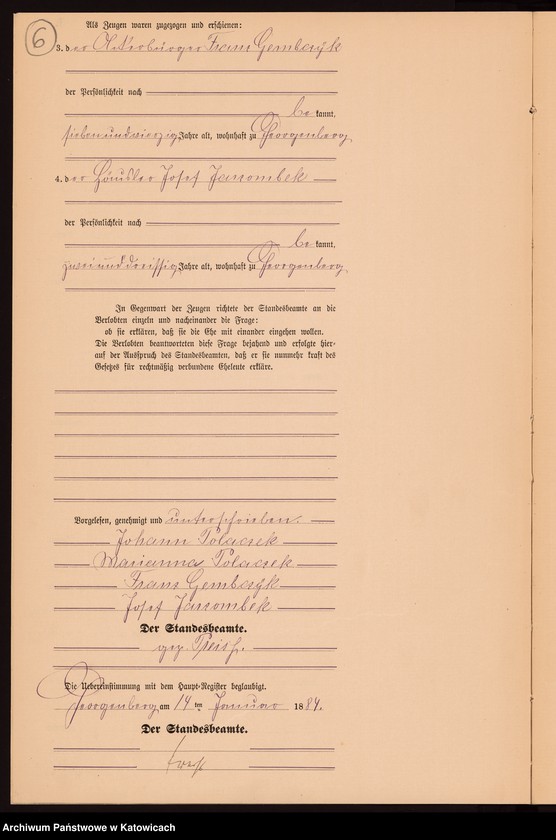 6
Als Zeugen waren zugezogen und erschienen:
3. der Ackerbürger Franz Gembczyk
der Persönlichkeit nach
bekannt,
siebenundvierzig Jahre alt, wohnhaft zu Georgenberg
4. der Häusler Josef Janombek
der Persönlichkeit nach
bekannt,
zweiunddreissig Jahre alt, wohnhaft zu Georgenberg
In Gegenwart der Zeugen richtete der Standesbeamte an die
Verlobten einzeln und nacheinander die Frage:
ob sie erklären, daß sie die Ehe mit einander eingehen wollen.
Die Verlobten beantworteten diese Frage bejahend und erfolgte hier-
auf der Ausspruch des Standesbeamten, daß er sie nunmehr kraft des
Gesetzes für rechtmäßig verbundene Eheleute erkläre.
Vorgelesen, genehmigt und unterschrieben.
Johann Polaczek
Marianna Polaczek
Franz Gembczyk
Josef Janombek
Der Standesbeamte.
gez.
Die Uebereinstimmung mit dem Haupt-Register beglaubigt.
Georgenberg am 14ten Januar 1884.
Der Standesbeamte.
Archiwum Państwowe w Katowicach